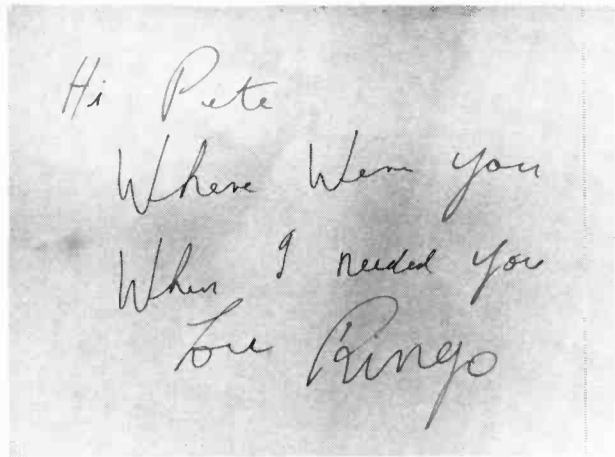 Hi Pete
Where Were you
When I needed you
Love Ringo